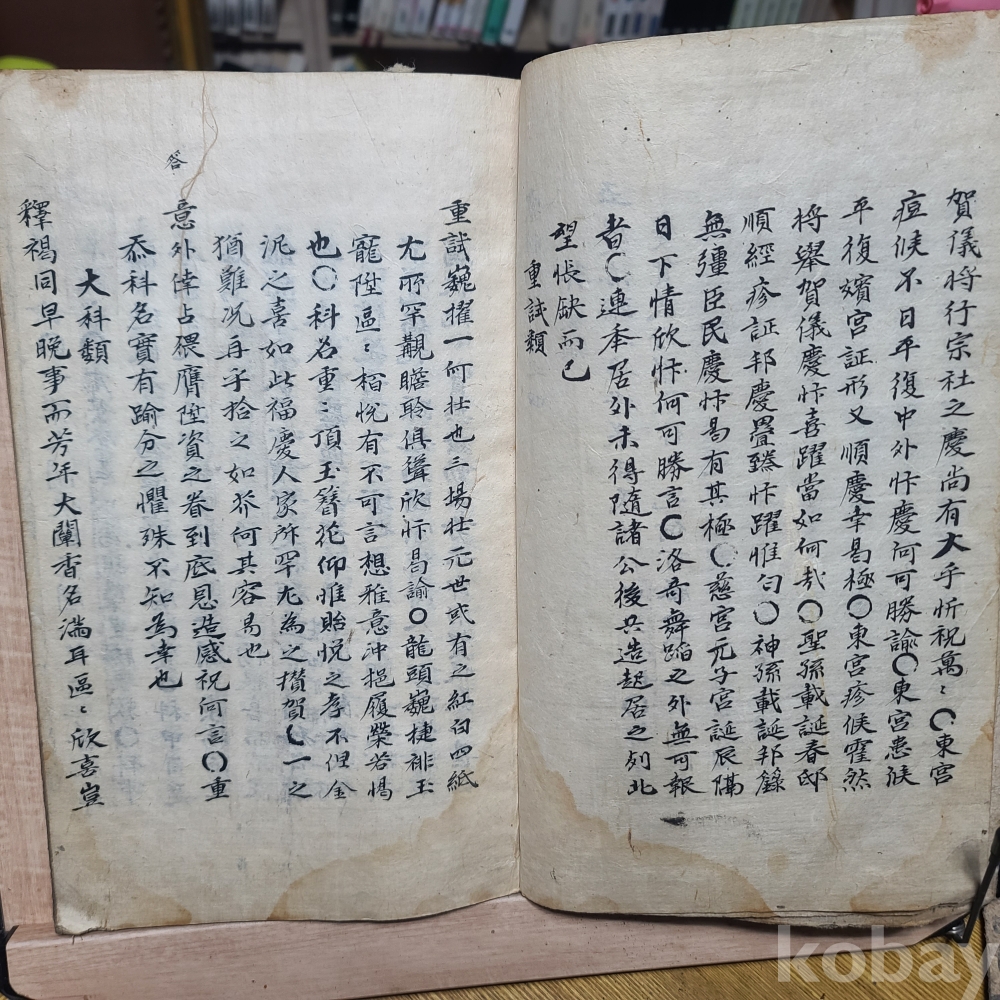 賀儀將行宗社之慶尙有大乎忻祝萬〻〇東宮
痘候不日平復中外忭慶何可勝諭〇東宮患候
平復嬪宮証形又順慶幸曷極〇東宮疹候霍然
將擧賀儀慶忭喜躍當如何哉〇聖孫載誕春邸
順經疹証邦慶疊臻忭躍惟勻〇神孫載誕邦籙
無彊臣民慶忭曷有其極〇慈宮元子宮誕辰隔
日下情欣忭何可勝言〇洛奇舞蹈之外無可報
者〇連夲居外未得隨諸公後共造起居之列北
望悵缺而已
重試類
重試巍擢一何壯也三場壯元世或有之紅白四紙
尤所罕覯瞻聆俱聳欣忭曷諭〇龍頭巍捷緋玉
寵陞區〻栢悅有不可言想雅意冲挹履榮若惕
也〇科名重〻頂玉簪花仰惟貽悅之孝不但金
泥之喜如此福慶人家所罕尤為之攅賀〇一之
猶難况再乎拾之如芥何其容易也
答
意外倖占猥膺陞資之眷到底恩造感祝何言〇重
忝科名實有踰分之懼殊不知為幸也
大科類
釋褐同早晚事而芳年大闡香名滿耳區〻欣喜豈
kobay